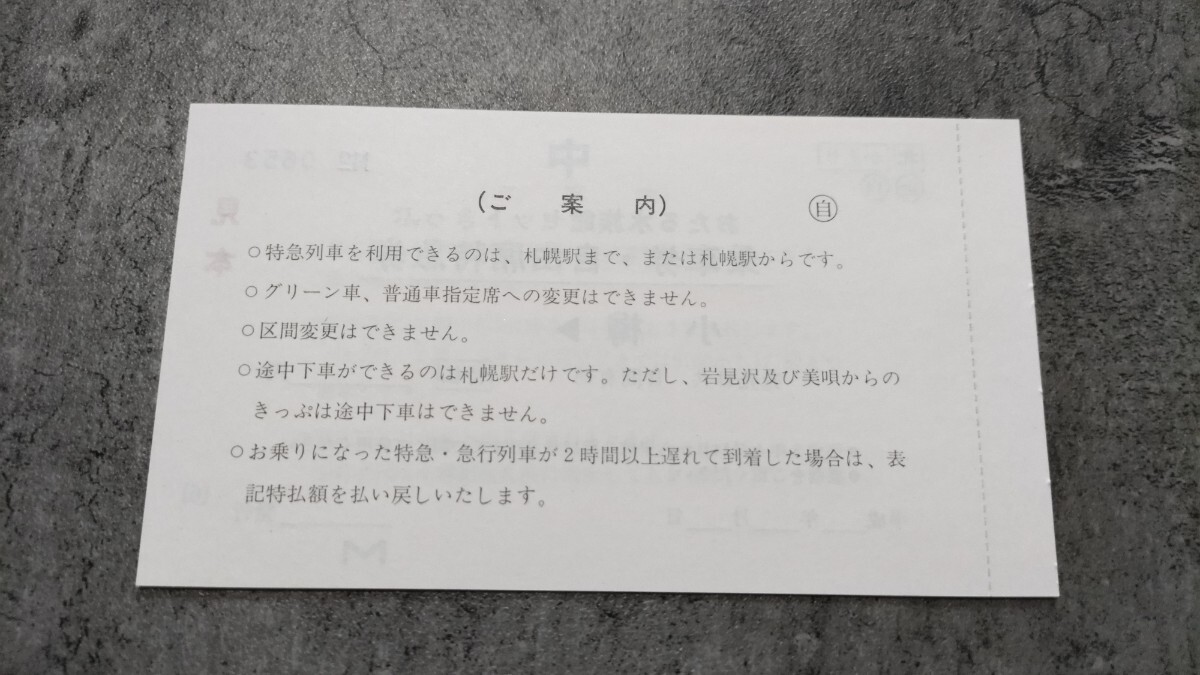 (ご案内) ㊀自
○特急列車を利用できるのは、札幌駅まで、または札幌駅からです。
○グリーン車、普通車指定席への変更はできません。
○区間変更はできません。
○途中下車ができるのは札幌駅だけです。ただし、岩見沢及び美唄からの
きっぷは途中下車はできません。
○お乗りになった特急・急行列車が2時間以上遅れて到着した場合は、表
記特払額を払い戻しいたします。